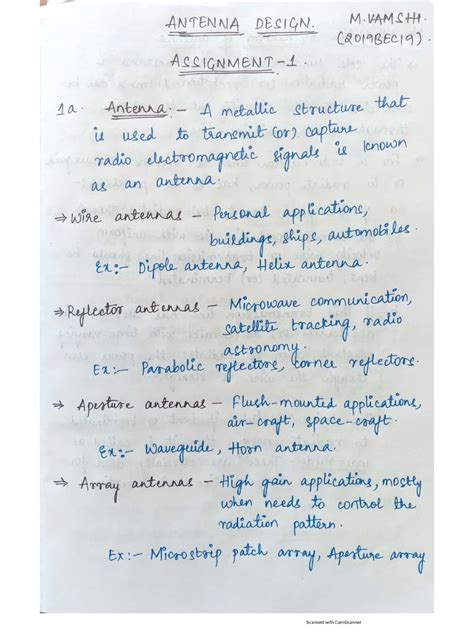 ANTENNA DESIGN.
M.VAMSHI.
(2019BEC19)
ASSIGNMENT-1.
1a. Antenna:- A metallic structure that
is used to transmit (or) capture
radio electromagnetic signals is known
as an antenna.
⇒ Wire antennas - Personal applications,
buildings, ships, automobiles.
Ex:- Dipole antenna, Helix antenna.
⇒ Reflector antennas - Microwave communication,
satellite tracking, radio
astronomy.
Ex:- Parabolic reflectors, corner reflectors.
⇒ Aperture antennas - Flush-mounted applications,
air-craft, space-craft.
Ex:- Waveguide, Horn antenna.
⇒ Array antennas - High gain applications, mostly
when needs to control the
radiation pattern.
Ex:- Microstrip patch array, Aperture array
Scanned with CamScanner